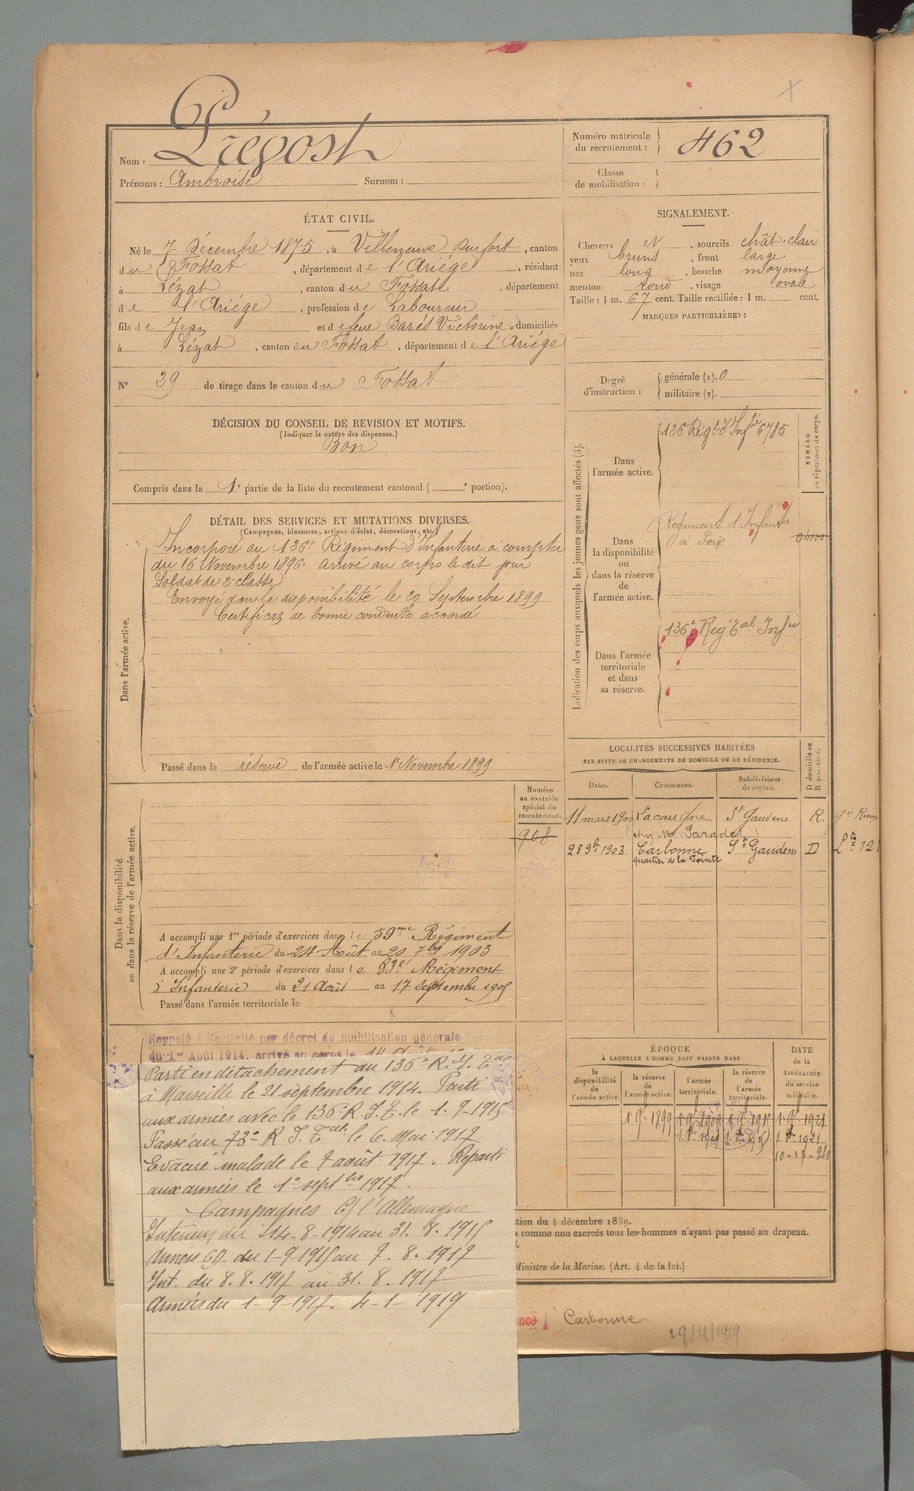 Nom : Prégost
Prénoms : Ambroise Surnom :
Numéro matricule du recrutement : 462
Classe de mobilisation :
ÉTAT CIVIL.
Né le 7 Décembre 1875, à Villeneuve Durfort, canton
du Fossat, département de l'Ariège, résidant
à Lézat, canton du Fossat, département
de l'Ariège, profession de Laboureur
fils de Jean et de feue Barès Victorine, domiciliés
à Lézat, canton du Fossat, département de l'Ariège
N° 29 de tirage dans le canton du Fossat
SIGNALEMENT.
Cheveux N, sourcils chât. clair
yeux bruns, front large
nez long, bouche moyenne
menton rond, visage ovale
Taille : 1 m. 67 cent. Taille rectifiée : 1 m. cent.
MARQUES PARTICULIÈRES :
Degré d'instruction : générale (1). 0
militaire (2).
DÉCISION DU CONSEIL DE REVISION ET MOTIFS.
(Indiquer la nature des dispenses.)
Bon
Compris dans la 1e partie de la liste du recrutement cantonal ( e portion).
DÉTAIL DES SERVICES ET MUTATIONS DIVERSES.
(Campagnes, blessures, actions d'éclat, décorations, etc.)
Dans l'armée active.
Incorporé au 136e Régiment d'Infanterie à compter
du 16 Novembre 1896 arrivé au corps le dit jour
Soldat de 2e classe
Envoyé dans la disponibilité le 20 Septembre 1899
Certificat de bonne conduite accordé
Passé dans la réserve de l'armée active le 1er Novembre 1899
Indication des corps auxquels les jeunes gens sont affectés (3).
NUMÉRO au répertoire du corps.
Dans l'armée active.
126e Régt d'Infie 6785
Dans la disponibilité ou dans la réserve de l'armée active.
Régiment d'Infanterie
à Foix
Dans l'armée territoriale et dans sa réserve.
136e Reg Tal Infie
LOCALITÉS SUCCESSIVES HABITÉES
PAR SUITE DE CHANGEMENTS DE DOMICILE OU DE RÉSIDENCE.
Dates. Communes. Subdivisions de région. D domicile ou R résidence.
11 mars 1900 Lacaugne St Gaudens R.
(chez Mr Saradet)
28 9bre 1903 Carbonne St Gaudens D
quartier de la Pointe
Dans la disponibilité ou dans la réserve de l'armée active.
Numéro au contrôle spécial du recrutement.
908
A accompli une 1re période d'exercices dans le 59me Régiment
d'Infanterie du 24 Août au 20 7bre 1903
A accompli une 2e période d'exercices dans le 83e Régiment
d'Infanterie du 21 Août au 17 Septembre 1905
Passé dans l'armée territoriale le
Rappelé à l'activité par décret de mobilisation générale
du 1er Août 1914, arrivé au corps le 14 Août
Parti en détachement au 136e R. I. Tale
à Marseille le 21 septembre 1914. Parti
aux armées avec le 136e R. I. T. le 1-9-1915
Passé au 73e R. I. Tale le 6 Mai 1917
Evacué malade le 7 août 1917. Reparti
aux armées le 1er septbre 1917.
Campagnes C/ l'Allemagne
Intérieur du 14-8-1914 au 31.8.1915
Armées CD. du 1-9-1915 au 7.8.1917
Int. du 8.8.1917 au 31.8.1917
Armées du 1-9-1917. 4-1-1919
ÉPOQUE
À LAQUELLE L'HOMME DOIT PASSER DANS
la disponibilité de l'armée active.
la réserve de l'armée active.
l'armée territoriale.
la réserve de l'armée territoriale.
DATE de la LIBÉRATION du service militaire.
1 9bre 1899
10-11-21
ction du 4 décembre 1889.
comme non exercés tous les hommes n'ayant pas passé au drapeau.
Ministre de la Marine. (Art. 4 de la loi.)
Carbonne
29/4/1919